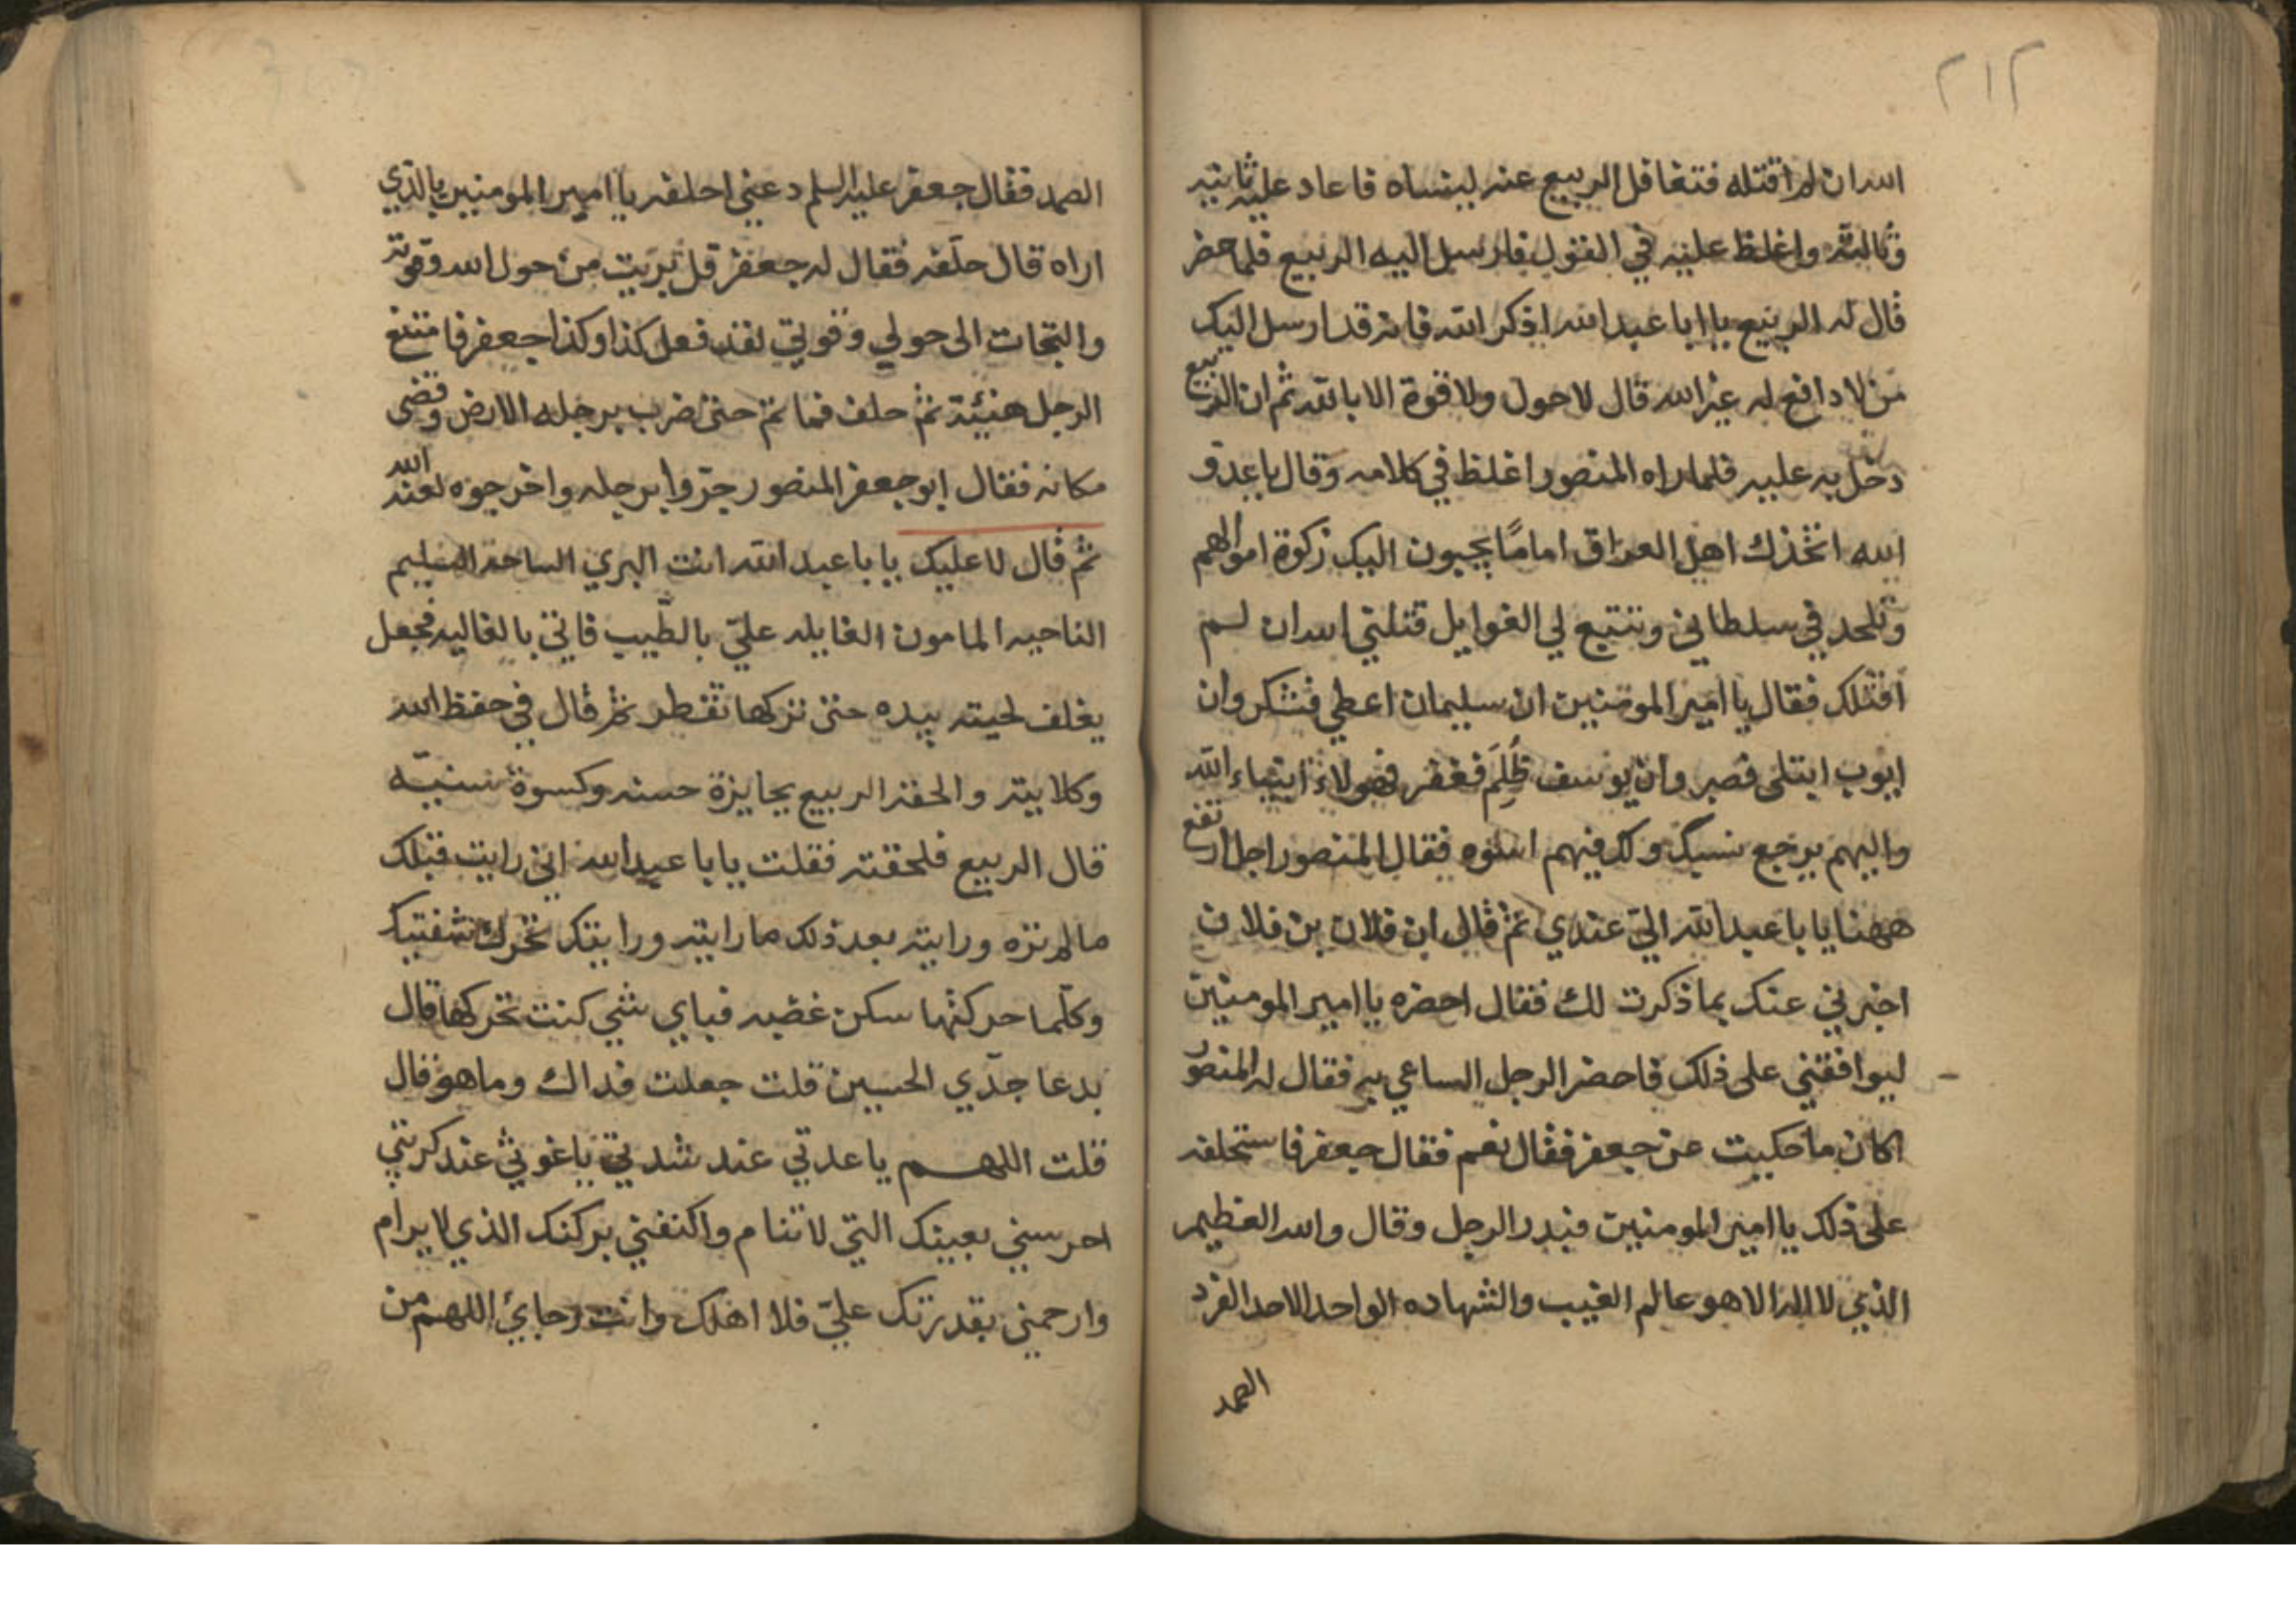 ٢١٢
الله ان لم اقتله فتغافل الربيع عنه لينساه فاعاد عليه ثانيه
وثالثه واغلظ عليه في القول فارسل اليه الربيع فلما حضر
قال له الربيع يا ابا عبد الله اذكر الله فانه قد ارسل اليك
من لا دافع له غير الله قال لا حول ولا قوة الا بالله ثم ان الربيع
دخل به عليه فلما راه المنصور اغلظ في كلامه وقال يا عدو
الله اتخذك اهل العراق اماما يجبون اليك زكوة اموالهم
وتلحد في سلطاني وتتبع لي الغوايل قتلني الله ان لم
اقتلك فقال يا امير المومنين ان سليمان اعطي فشكر وان
ايوب ابتلى فصبر وان يوسف ظُلِمَ فغفر فهولاء انبياء الله
واليهم يرجع نسبك ولك فيهم اسوه فقال المنصور اجل ارتفع
ههنا يا با عبد الله الي عندي ثم قال ان فلان بن فلان
اخبرني عنك بما ذكرت لك فقال احضره يا امير المومنين
ليوافقني على ذلك فاحضر الرجل الساعي به فقال له المنصور
اكان ما حكيت عن جعفر فقال نعم فقال جعفر فاستحلفه
على ذلك يا امير المومنين فبدر الرجل وقال والله العظيم
الذي لا اله الا هو عالم الغيب والشهاده الواحد الاحد الفرد
الصمد
الصمد فقال جعفر عليه السلم دعني احلفه يا امير المومنين بالذي
اراه قال حلّفه فقال له جعفر قل بريت من حول الله وقوته
والتجات الى حولي وقوتي لقد فعل كذا وكذا جعفر فامتنع
الرجل هنيئة ثم حلف فما تم حتى ضرب برجله الارض وقضى
مكانه فقال ابو جعفر المنصور جرّوا برجله واخرجوه لعنه الله
ثم قال لا عليك يا با عبد الله انت البري الساحة السليم
الناحيه المامون الغايله عليّ بالطّيب فاتي بالغاليه فجعل
يغلف لحيته بيده حتى تركها تقطر ثم قال في حفظ الله
وكلايته والحقه الربيع بجايزة حسنه وكسوة سنيّه
قال الربيع فلحقته فقلت يا با عبد الله اني رايت قبلك
ما لم تره ورايته بعد ذلك ما رايته ورايتك تحرك شفتيك
وكلّما حركتها سكن غضبه فباي شي كنت تحركها قال
بدعا جدّي الحسين قلت جعلت فداك وما هو قال
قلت اللهم يا عدتي عند شدتي يا غوثي عند كربتي
احرسني بعينك التي لا تنام واكنفني بركنك الذي لا يرام
وارحمني بقدرتك عليّ فلا اهلك وانت رجاي اللهم من